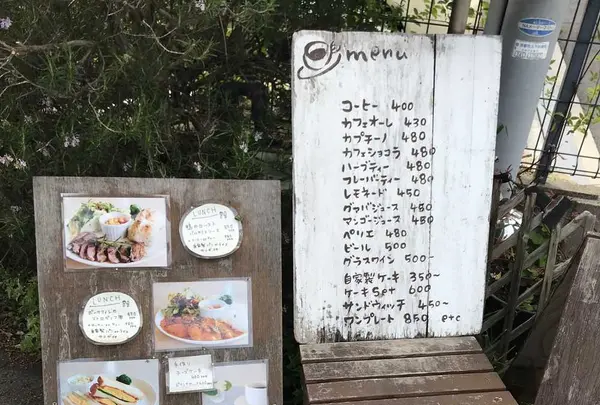 menu
コーヒー 400
カフェオーレ 430
カプチーノ 480
カフェショコラ 480
ハーブティー 480
フレーバーティー 480
レモネード 450
グァバジュース 450
マンゴージュース 450
ペリエ 480
ビール 500
グラスワイン 500~
自家製ケーキ 350~
ケーキset 600
サンドウィッチ 450~
ワンプレート 850 etc
LUNCH
LUNCH